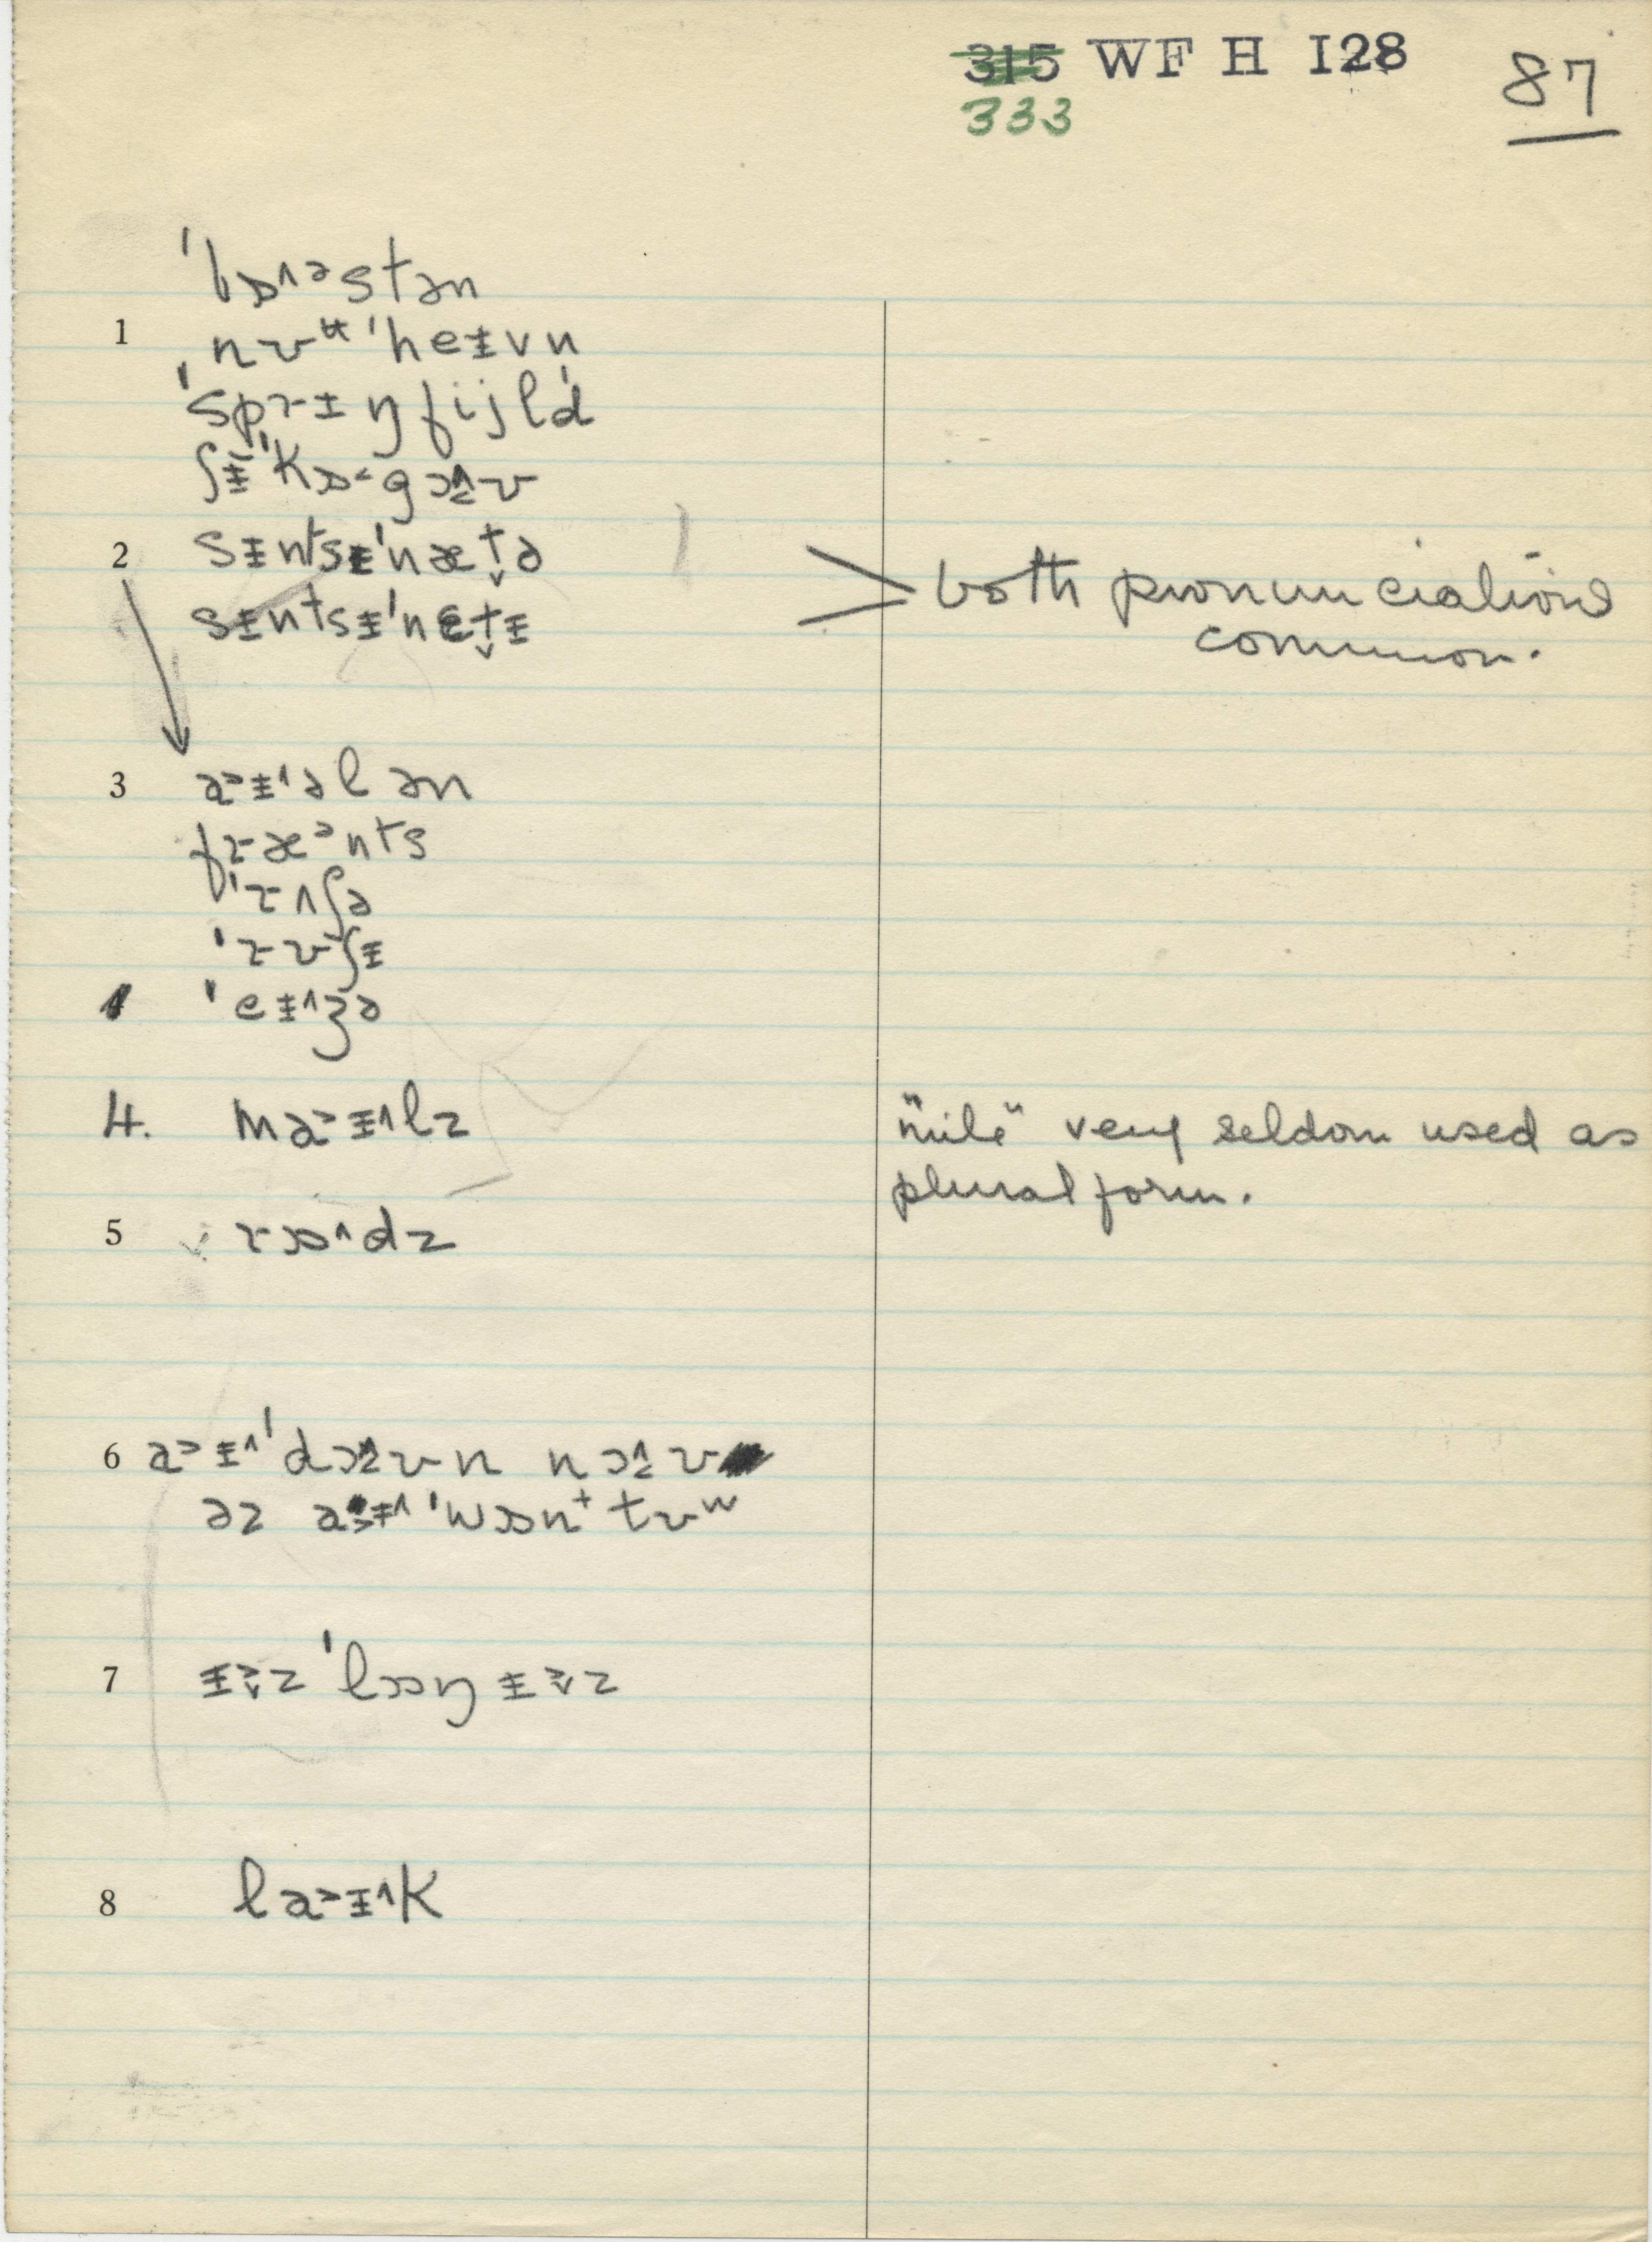 315 WF H 128 87
333
ˈbɒ˄ᵊstən
1 ˌnʊᵾˈheɪvn
ˈsprɪŋfijld
ʃɪˈkɒ˂gɔ˄ʊ
2 sɪntsɪˈnæt̬ə
sɪntsɪˈnɛt̬ɪ both pronunciations
common.
3 a˃ɪ˄ələn
fræᵊnts
ˈrʌʃə
ˈrʊʃɪ
ˈeɪ˄ʒə
4. ma˃ɪ˄lz "mile" very seldom used as
plural form.
5 rɒ˄dz
6 a˃ɪ˄ˈdɔ˄ʊn nɔ˄ʊ
əz a˃ɪ˄ ˈwɔn⁺ tʊʷ
7 ɪ˃˅z ˈlɔŋ ɪ˃˅z
8 la˃ɪ˄k